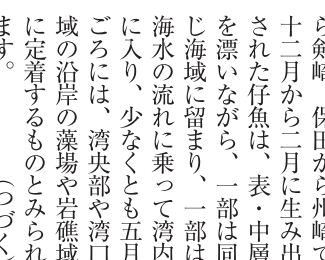 ら剣崎、保田から州崎で
十二月から二月に生み出
された仔魚は、表・中層
を漂いながら、一部は同
じ海域に留まり、一部は
海水の流れに乗って湾内
に入り、少なくとも五月
ごろには、湾央部や湾口
域の沿岸の藻場や岩礁域
に定着するものとみられ
ます。　（つづく